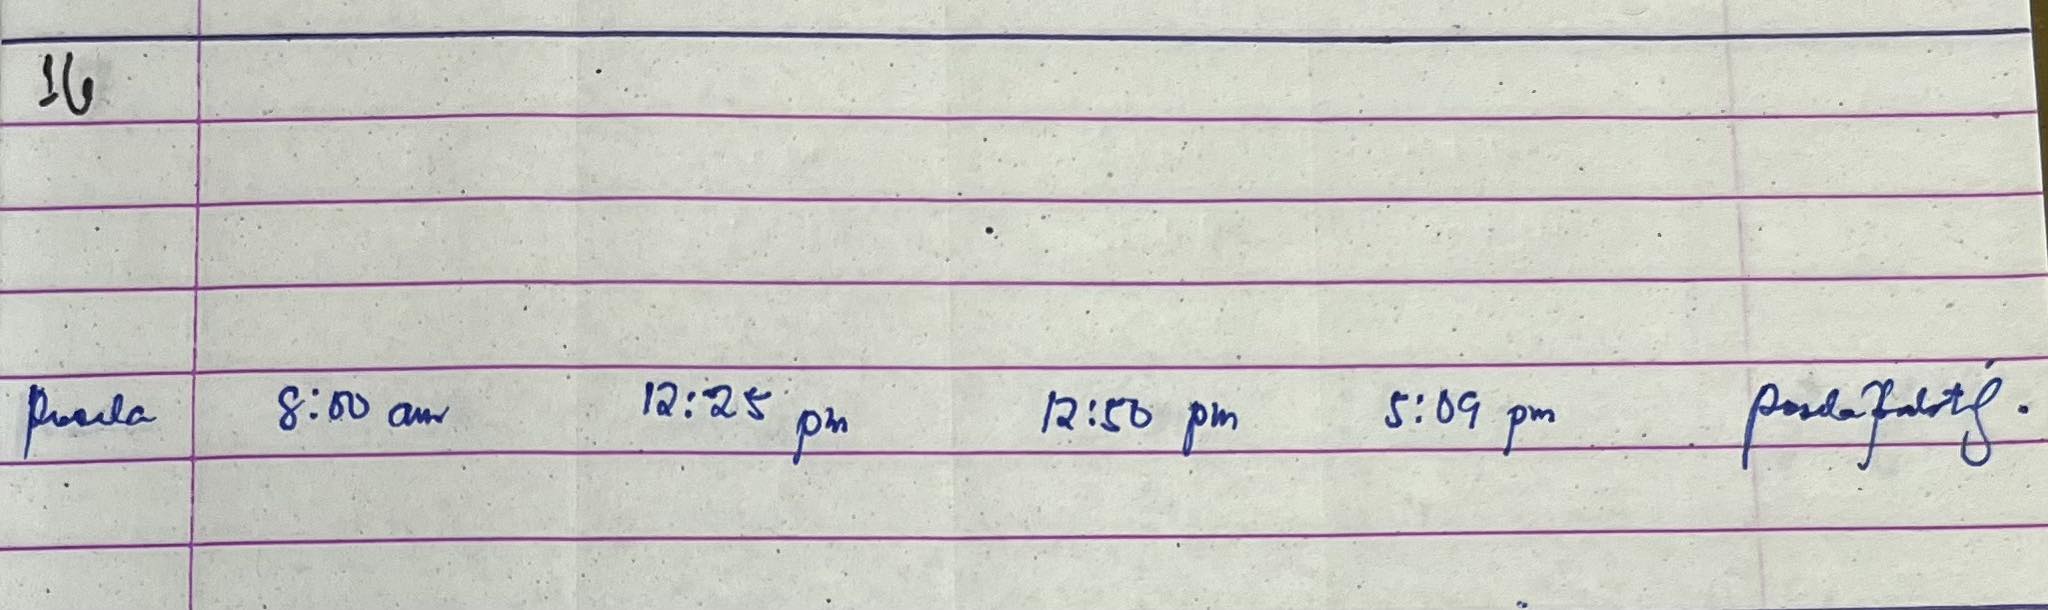 16
8:00 am 12:25 pm 12:50 pm 5:09 pm